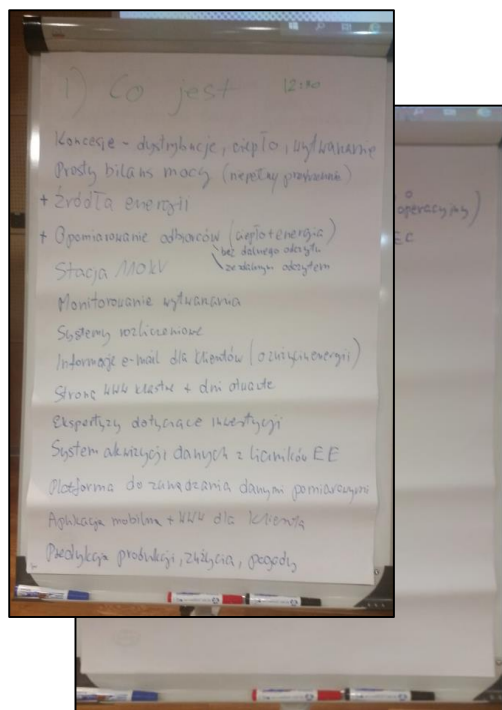 1) Co jest 12:00
Koncesje - dystrybucje, ciepło, wytwarzanie
Prosty bilans mocy (niepełny
+ Źródła energii
+ Opomiarowanie odbiorców (ciepło + energia)
bez dalnego odczytu
ze zdalnym odczytem
Stacja 110 kV
Monitorowanie wytwarzania
Systemy rozliczeniowe
Informacje e-mail dla klientów (o zużyciu energii)
Strona WWW klastra + dni otwarte
Ekspertyzy dotyczące inwestycji
System akwizycji danych z liczników EE
Platforma do zarządzania danymi pomiarowymi
Aplikacja mobilna + WWW dla klienta
Predykcja produkcji, zużycia, pogody
operacyjny)
EC